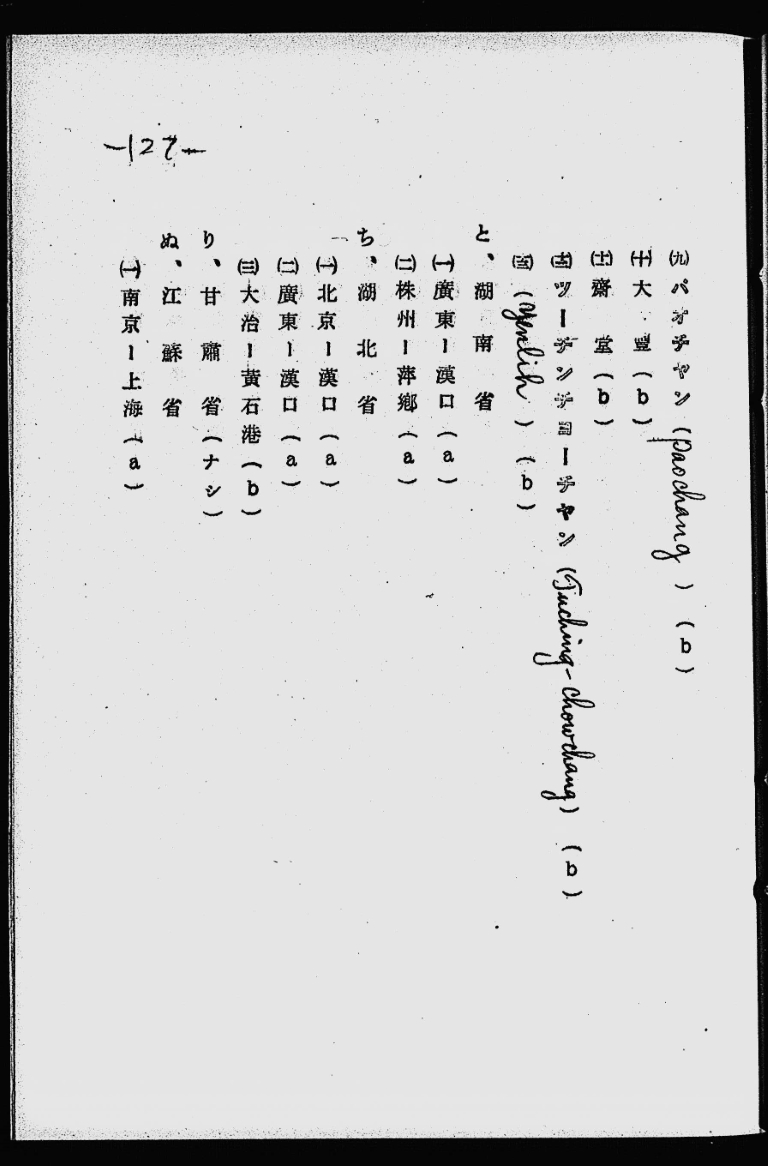 —127—
㈨パオチャン(Paochang)(b)
㈩大豊(b)
(十一)齋堂(b)
(十二)ツーチンチヨーチャン(Tuching-chowchang)(b)
(十三)(Yenlih)(b)
と、湖南省
㈠廣東ー漢口(a)
㈡株州ー萍鄕(a)
ち、湖北省
㈠北京ー漢口(a)
㈡廣東ー漢口(a)
㈢大冶ー黃石港(b)
り、甘肅省(ナシ)
ぬ、江蘇省
㈠南京ー上海(a)